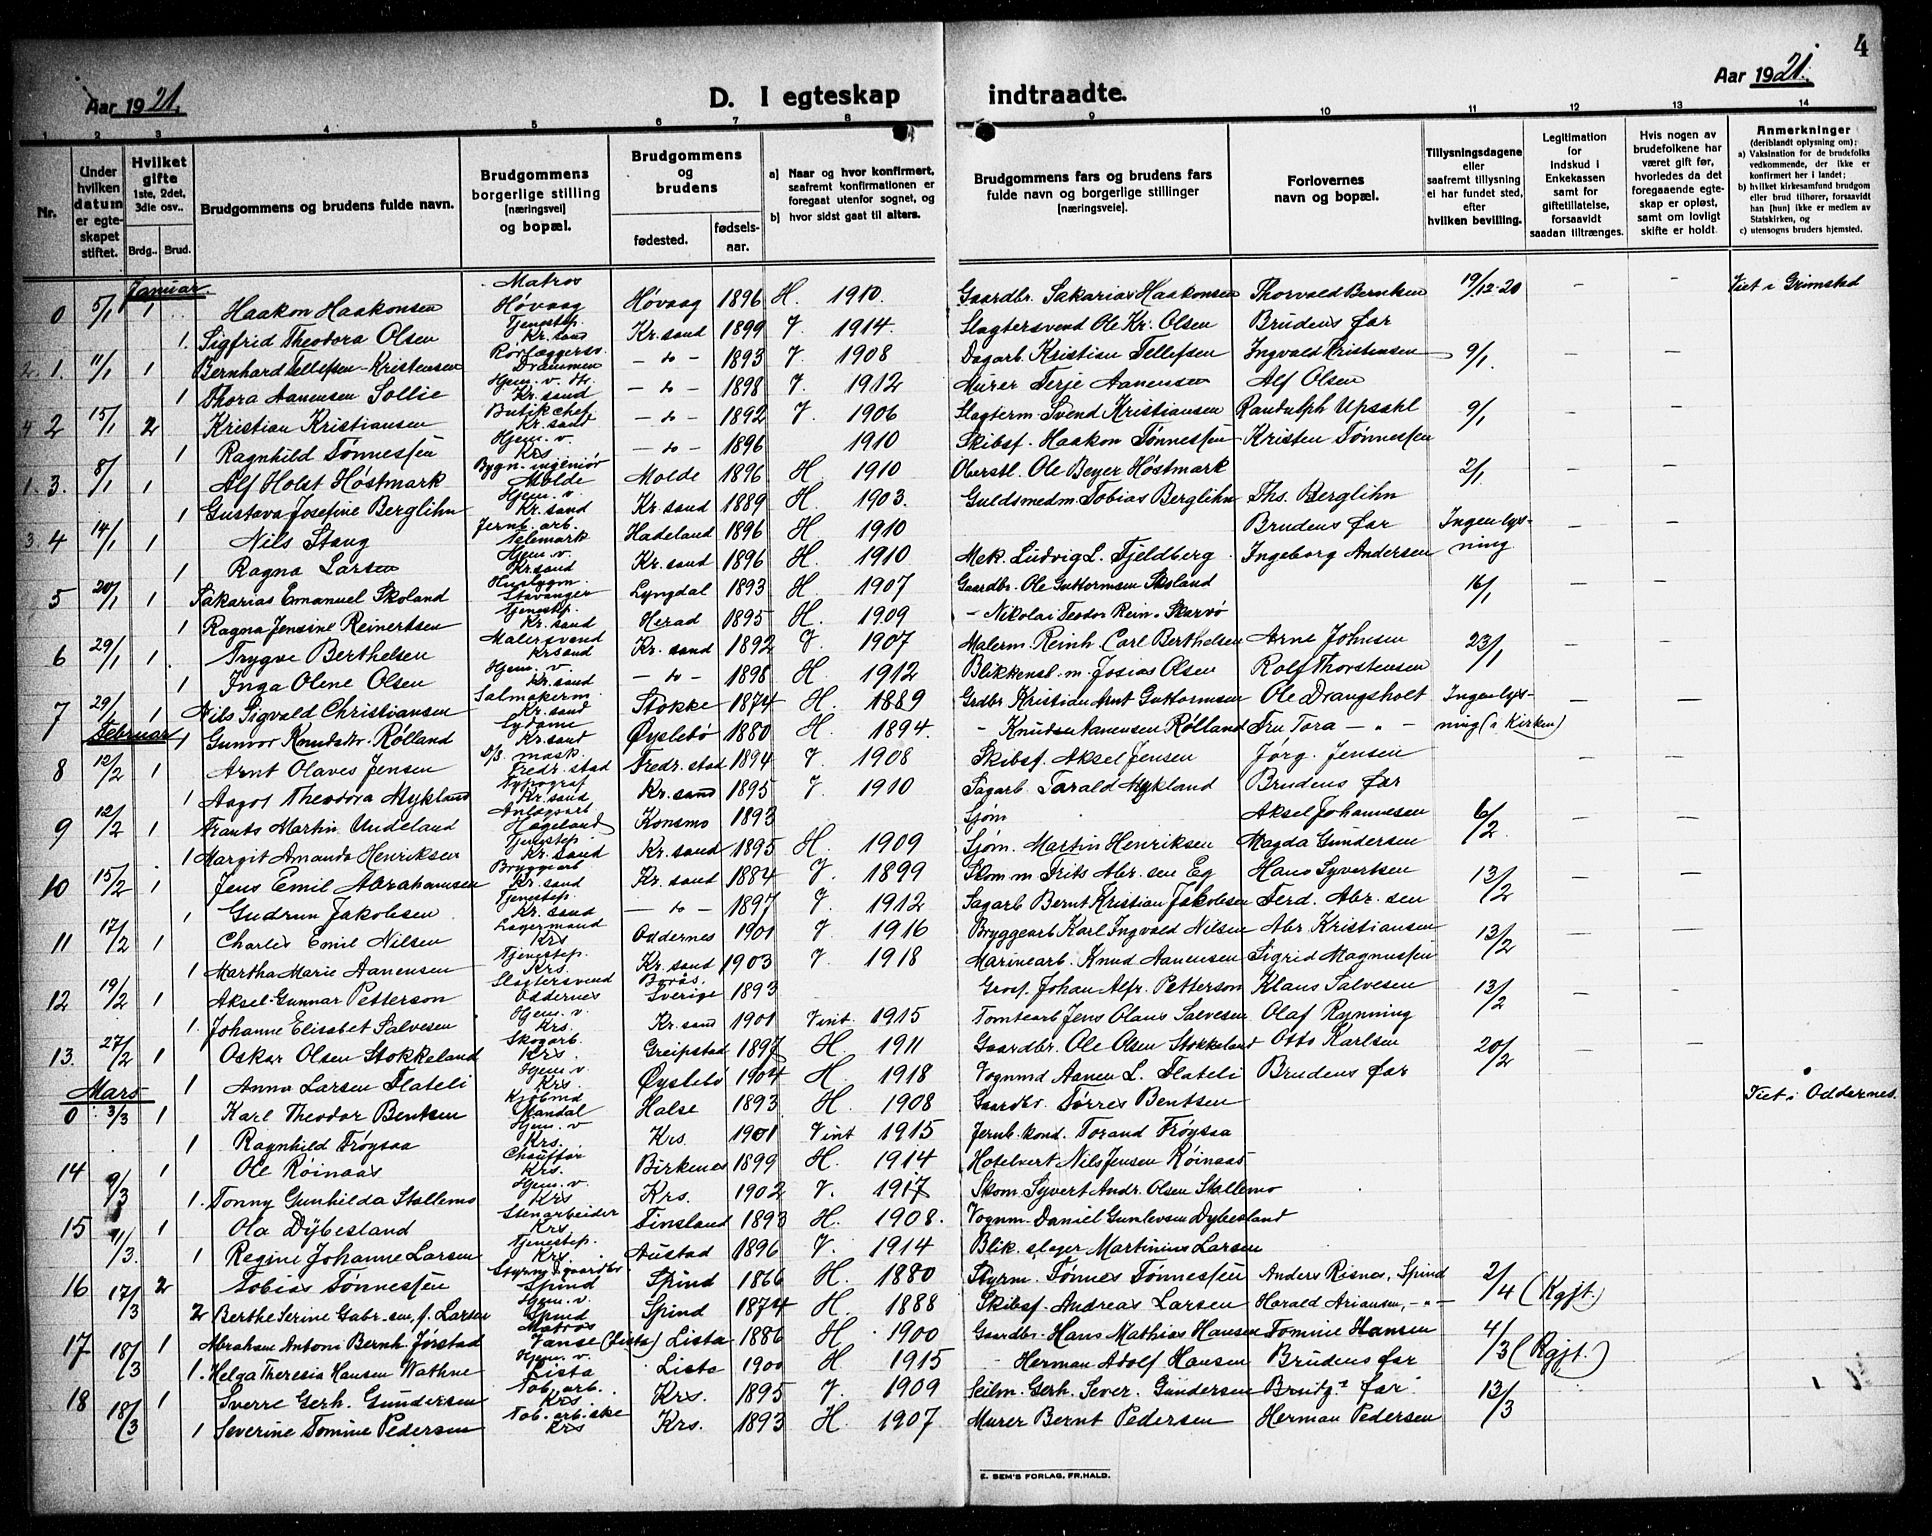 4
Aar 1921.
D. I egteskap indtraadte.
Aar 1921.
1 2 3 4 5 6 7 8 9 10 11 12 13 14
Nr.
Under hvilken datum er egteskapet stiftet.
Hvilket gifte 1ste, 2det, 3die osv..
Brdg.. Brud.
Brudgommens og brudens fulde navn.
Brudgommens borgerlige stilling [næringsvei] og bopæl.
Brudgommens og brudens
fødested. fødselsaar.
a) Naar og hvor konfirmert, saafremt konfirmationen er foregaat utenfor sognet, og
b) hvor sidst gaat til alters.
Brudgommens fars og brudens fars fulde navn og borgerlige stillinger [næringsveie].
Forlovernes navn og bopæl.
Tillysningsdagene eller saafremt tillysning ei har fundet sted, efter hvilken bevilling.
Legitimation for indskud i Enkekassen samt for giftetillatelse, forsaavidt saadan tiltrænges.
Hvis nogen av brudefolkene har været gift før, hvorledes da det foregaaende egteskap er opløst, samt om lovligt skifte er holdt.
Anmerkninger (deriblandt oplysning om: a) Vaksination for de brudefolks vedkommende, der ikke er konfirmert her i landet; b) hvilket kirkesamfund brudgom eller brud tilhører, forsaavidt han [hun] ikke er medlem av Statskirken, og c) utensogns bruders hjemsted.
Januar.
0 5/1 1 Haakon Haakonsen Matros Høvaag Høvaag 1896 H. 1910. Gaardbr. Sakarias Haakonsen Thorvald Berntsen 19/12-20 - - Viet i Grimstad
1. Sigfrid Theodora Olsen Tjenestep. Kr. sand Kr. sand 1899 V. 1914. Slagtersvend Ole Kr. Olsen Brudens far
2. 1. 11/1 1 Bernhard Tellefsen-Kristensen Rørlæggersv. Drammen - do - 1893 V. 1908 Dagarb. Kristian Tellefsen Ingvald Kristensen 9/1 - -
1 Thora Aanensen Sollie Hjem. v. Kr. sand - do - 1898 V. 1912 Murer Terje Aanensen Alf Olsen
4 2 15/1 2 Kristian Kristiansen Butikchef Kr. sand - do - 1892 V. 1906 Slagterm. Svend Kristiansen Randulph Upsahl 9/1 - -
1 Ragnhild Tønnessen Hjem. v. Krs - do - 1896 1910 Skibsf. Haakon Tønnessen Kristen Tønnessen
1. 3. 8/1 1 Alf Holst Høstmark Bygn. ingeniør Molde Molde 1896 H 1910 Oberstl. Ole Beyer Høstmark 2/1 - -
1 Gustava Josefine Berglihn Hjem. v. Kr. sand Kr. sand 1889 H. 1903. Guldsmedm. Tobias Berglihn Ths. Berglihn
3. 4 14/1 1 Nils Stang Jernb. arb. Telemark Hadeland 1896 H 1910 Brudens far Ingen lysning - -
1 Ragna Larsen Hjem. v. Kr. sand Kr. sand 1896 H. 1910 Mek. Ludvig L. Fjeldberg Ingeborg Andersen
5 20/1 1 Sakarias Emanuel Skoland Stavanger Lyngdal 1893 H. 1907 Gaardbr. Ole Guttormsen Skoland 16/1 - -
1 Ragna Jensine Reinertsen Tjenestep. Kr. sand Herad 1895 H. 1909 - Nikolai Teodor Rein.
6 29/1 1 Trygve Berthelsen Malersvend Krsand Kr. sand 1892 V. 1907 Malerm. Reinh. Carl Berthelsen Arne Johnsen 23/1 - -
1 Inga Olene Olsen Hjem. v. Kr. sand - do - 1898 H. 1912 Blikkensl. m. Josias Olsen Rolf Thorstensen
7 29/1 1 Nils Sigvald Christiansen Salmakerm Kr. sand Stokke 1874 H. 1889 Grdbr. Kristian Arnt Guttormsen Ole Drangsholt Ingen lysning (i Kirken) - -
Februar 1 Gunvor Knudsdtr. Rølland Sydame Kr. sand Øyslebø 1880 H. 1894. - Knud Aanensen Rølland Fru Tora - " -
8 12/2 1 Arnt Olaves Jensen D/S mask. Fredr. stad Fredr. stad 1894 V. 1908 Skibsf. Aksel Jensen Jørg. Jensen - -
1 Aagot Theodora Mykland Typograf Kr. sand Kr. sand 1895 V 1910 Sagarb. Tarald Mykland Brudens far
9 12/2 1 Frants Martin Undeland Anlægsarb Hægeland Konsmo 1893 Sjøm Aksel Johannesen 6/2. - -
1 Margit Amanda Henriksen Tjenestep. Kr. sand Kr. sand 1895 H. 1909 Sjøm. Martin Henriksen Magda Gundersen
10 15/2 1 Jens Emil Abrahamsen Bryggearb Kr. sand Kr. sand 1884 V. 1899 Skm. m. Frits Abr. sen Eg Hans Syvertsen 13/2 - -
1 Gudrun Jakobsen Tjenestep. Kr. sand - do - 1897 V. 1912 Sagarb Bernt Kristian Jakobsen Ferd. Abr. sen
11 17/2 1 Charles Emil Nilsen Lagermand Krs Oddernes 1901 V 1916 Bryggearb Karl Ingvald Nilsen Abr. Kristiansen 13/2 - -
1 Martha Marie Aanensen Tjenestep. Krs. Kr. sand 1903 V 1918 Marinearb. Knud Aanensen Sigrid Magnussen
12 19/2 1 Aksel Gunnar Petterson Slagtersvend Oddernes Borås. Sverige 1893 Gros. Johan Alfr. Petterson Klaus Salvesen 13/2 - -
1. Johanne Elisabet Salvesen Hjem. v. Krs. Kr. sand 1901 Vint. 1915 Tomtearb Jens Olaus Salvesen Olaf Rynning
13. 27/2 1 Oskar Olsen Stokkeland Skogarb. Krs. Greipstad 1897 H. 1911 Gaardbr. Ole Olsen Stokkeland Otto Karlsen 20/2 - -
Mars 1 Anna Larsen Flateli Hjem. v. Krs Øyslebø 1904 H. 1918 Vognmd Aanen L. Flateli Brudens far
0 3/3 1 Karl Theodor Bentsen Kjøbmd Mandal Halse 1893 H. 1908 Gaardbr. Tørres Bentsen Viet i Oddernes.
1 Ragnhild Frøysaa Hjem. v Krs. Krs. 1901 Vint 1915 Jernb. kond. Torand Frøysaa
14 9/3 1 Ole Røinaas Chauffør Krs. Birkenes 1899 H. 1914 Hotelvert Nils Jensen Røinaas
1. Tonny Gunhilda Stallemo Hjem. v. Krs Krs. 1902 V. 1917 Skom. Syvert Andr. Olsen Stallemo
15 11/3. 1 Ola Dybesland Stenarbeider Krs. Finsland 1893 H. 1908. Vognm. Daniel Gunlevsen Dybesland
1 Regine Johanne Larsen Tjenestep. Krs. Austad 1896 V. 1914 Blik. slager Martinius Larsen
16 17/3 2 Tobias Tønnessen Styrm & gaardbr Spind Spind 1866 H. 1880 Styrm. Tønnes Tønnessen Anders Risnes, Spind 2/4 (Kgjt.)
2 Berthe Serine Gabr. sen, f. Larsen Hjem. v. Spind Spind 1874 H. 1888 Skibsf. Andreas Larsen Harald Ariansen, - " -
17 18/3 1 Abraham Antoni Bernh. Jørstad Matros Vanse (Lista) Lista 1886 H 1900 Gaardbr. Hans Mathias Hansen Tomine Hansen 4/3 (Kgjt.)
1. Helga Theresia Hansen Wathne Hjem. v. Lista Lista 1900 H 1915 - Herman Adolf Hansen Brudens far
18 18/3 1 Sverre Gerh. Gundersen Tob. arb. Krs. Krs. 1895 V. 1909 Seilm. Gerh. Sever. Gundersen Brudg.s far 13/3
1 Severine Tomine Pedersen Tob. arb. ske Krs Krs. 1893 H. 1907 Murer Bernt Pedersen Herman Pedersen
E. SEM'S FORLAG, FR.HALD.